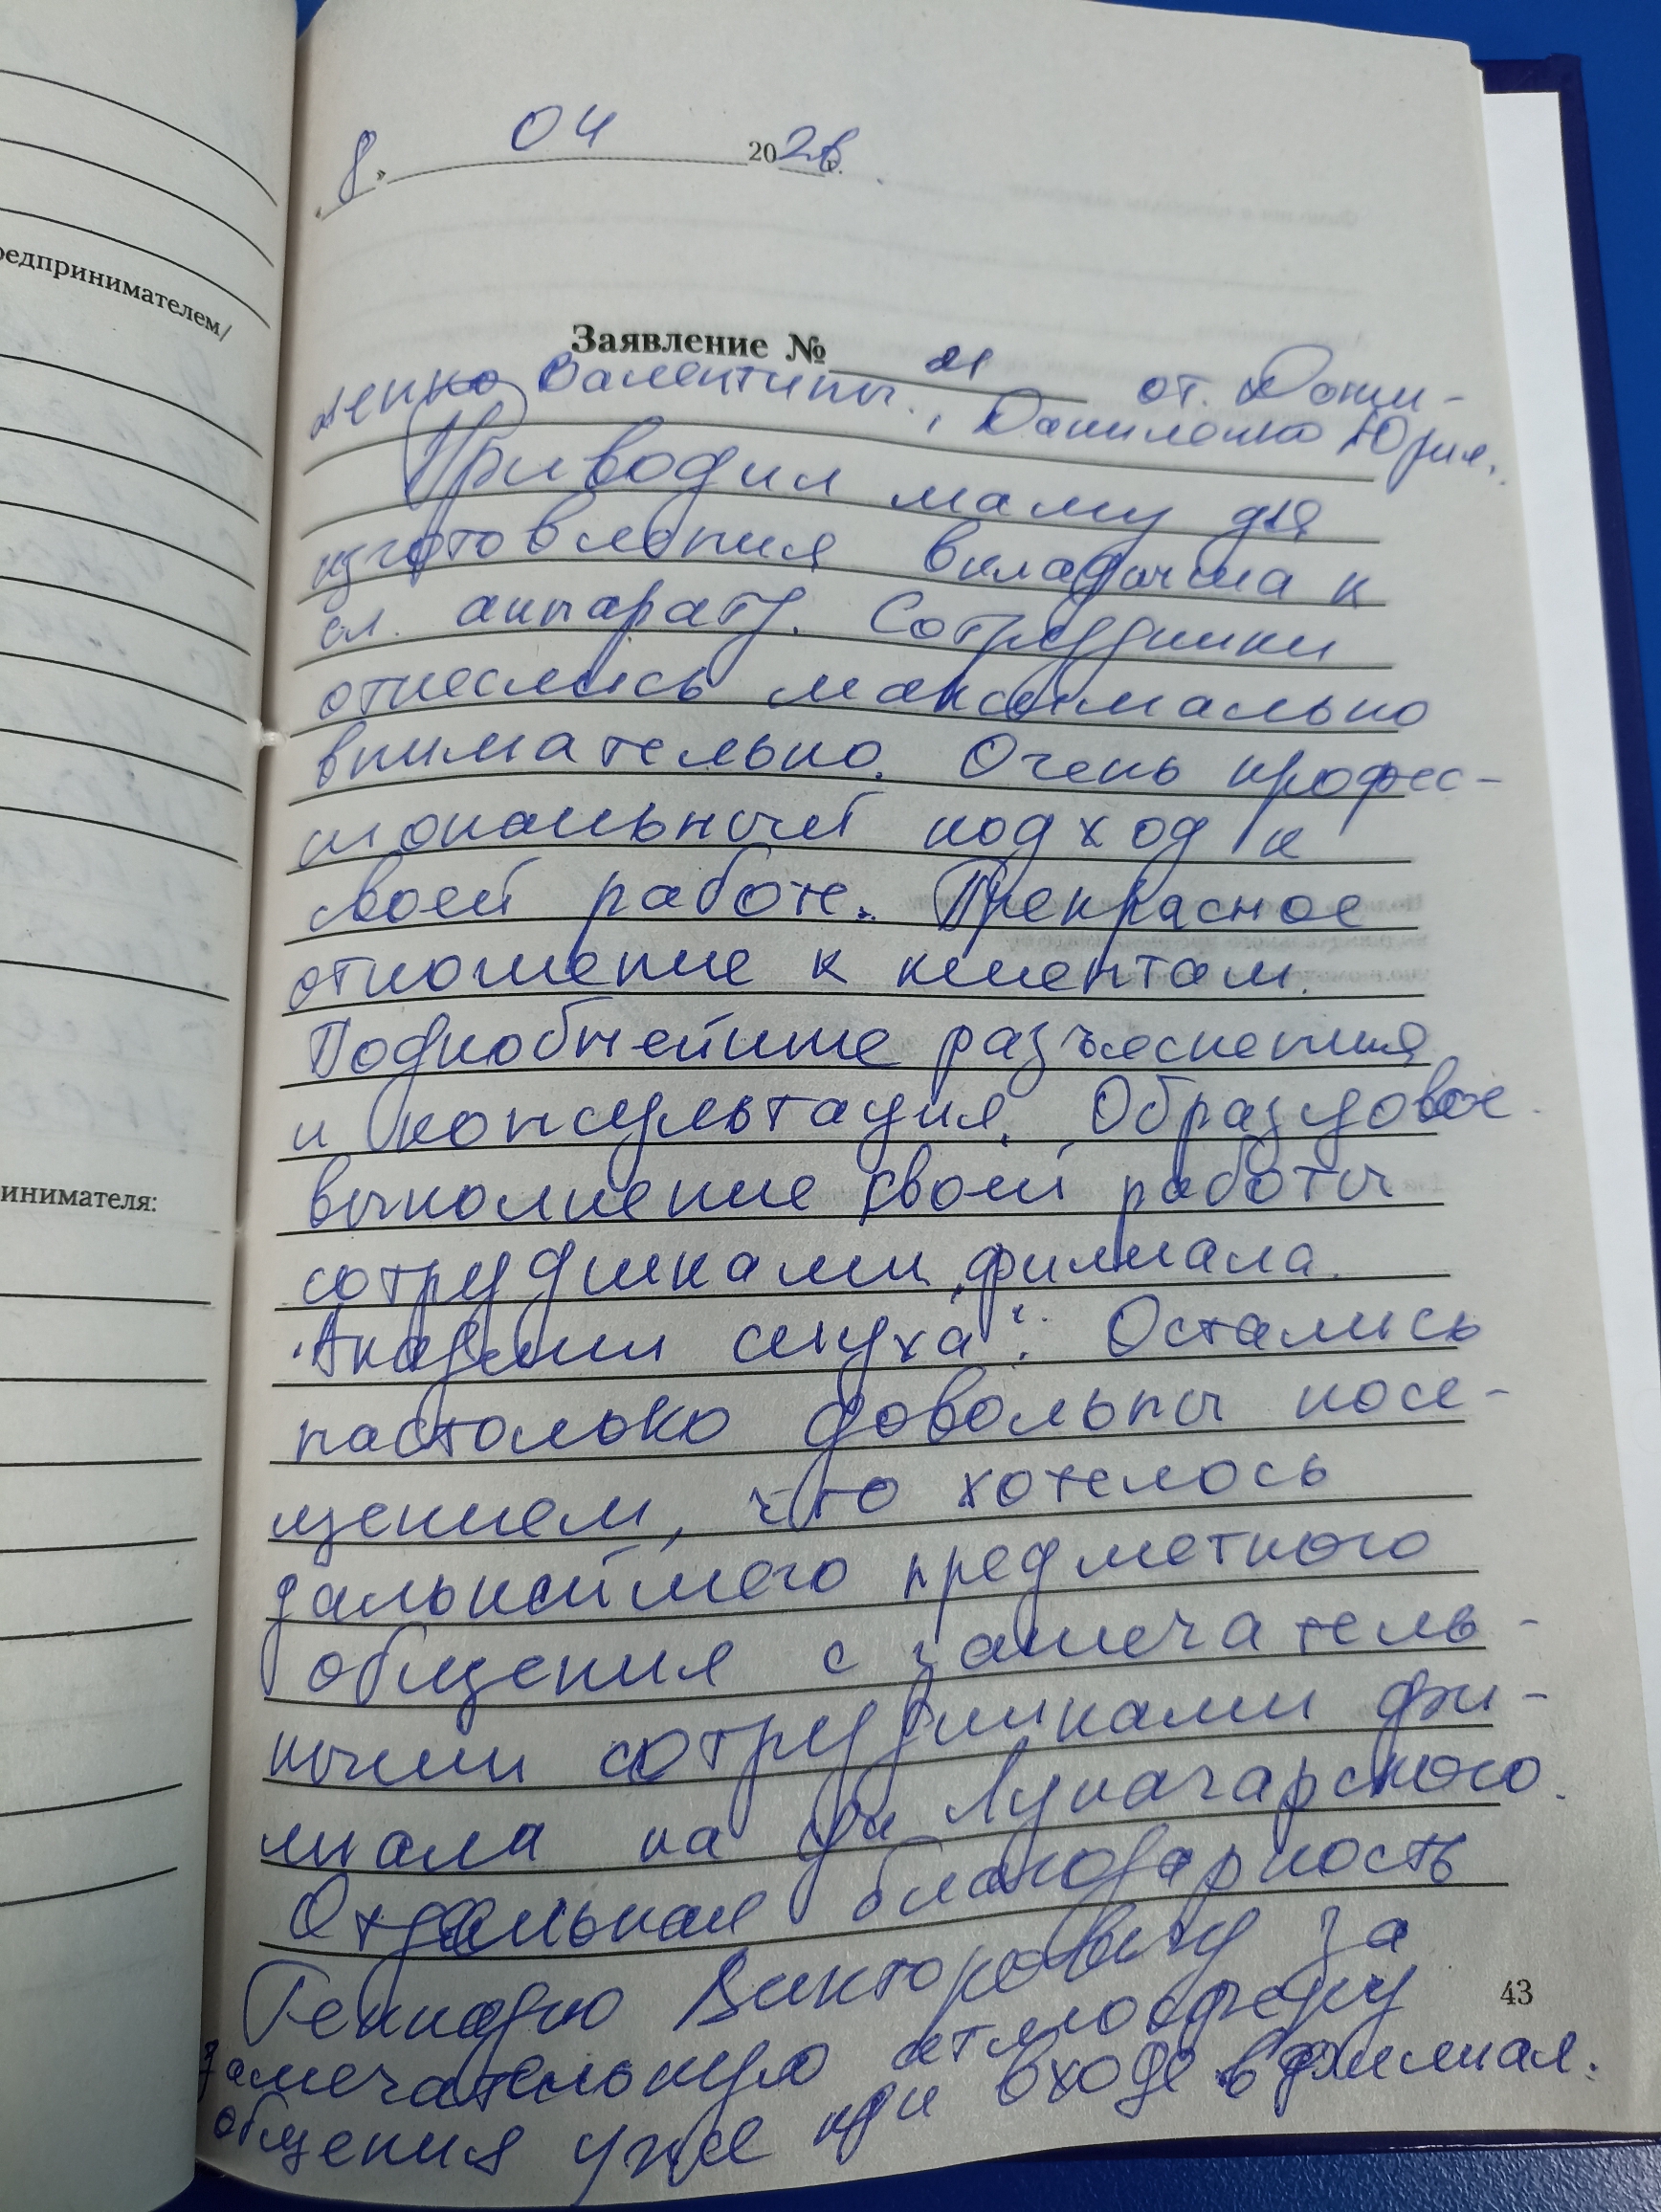 редпринимателем/
инимателя:
« 8 » 04 2026 г.
Заявление № 21 от Дани-
ленко Валентины., Даниленко Юрия.
Приводил маму для
изготовления вкладыша к
сл. аппарату. Сотрудники
отнеслись максимально
внимательно. Очень профес-
сиональный подход к
своей работе. Прекрасное
отношение к клиентам.
Подробнейшие разъеснения
и консультация. Образцовое
выполнение своей работы
сотрудниками филиала
"Академии слуха". Остались
настолько довольны посе-
щением, что хотелось
дальнейшего предметного
общения с замечатель-
ными сотрудниками фи-
лиала на Луначарского.
Отдельная благодарность
Геннадию Викторовичу за
замечательную атмосферу
общения уже при входе в филиал.
43